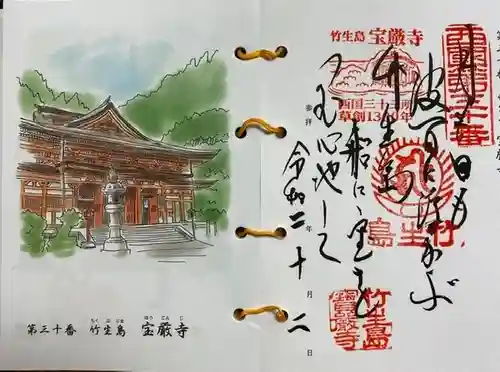 竹生島 宝厳寺
西国三十三所
草創1300年
西國第三十番
月も日も
波間に浮かぶ
竹生島
船に宝を
つむ心地して
参拝 令和二年十月二日
竹生島
竹生島
寳厳寺
ちくぶしま ほうごんじ
第三十番 竹生島 宝厳寺